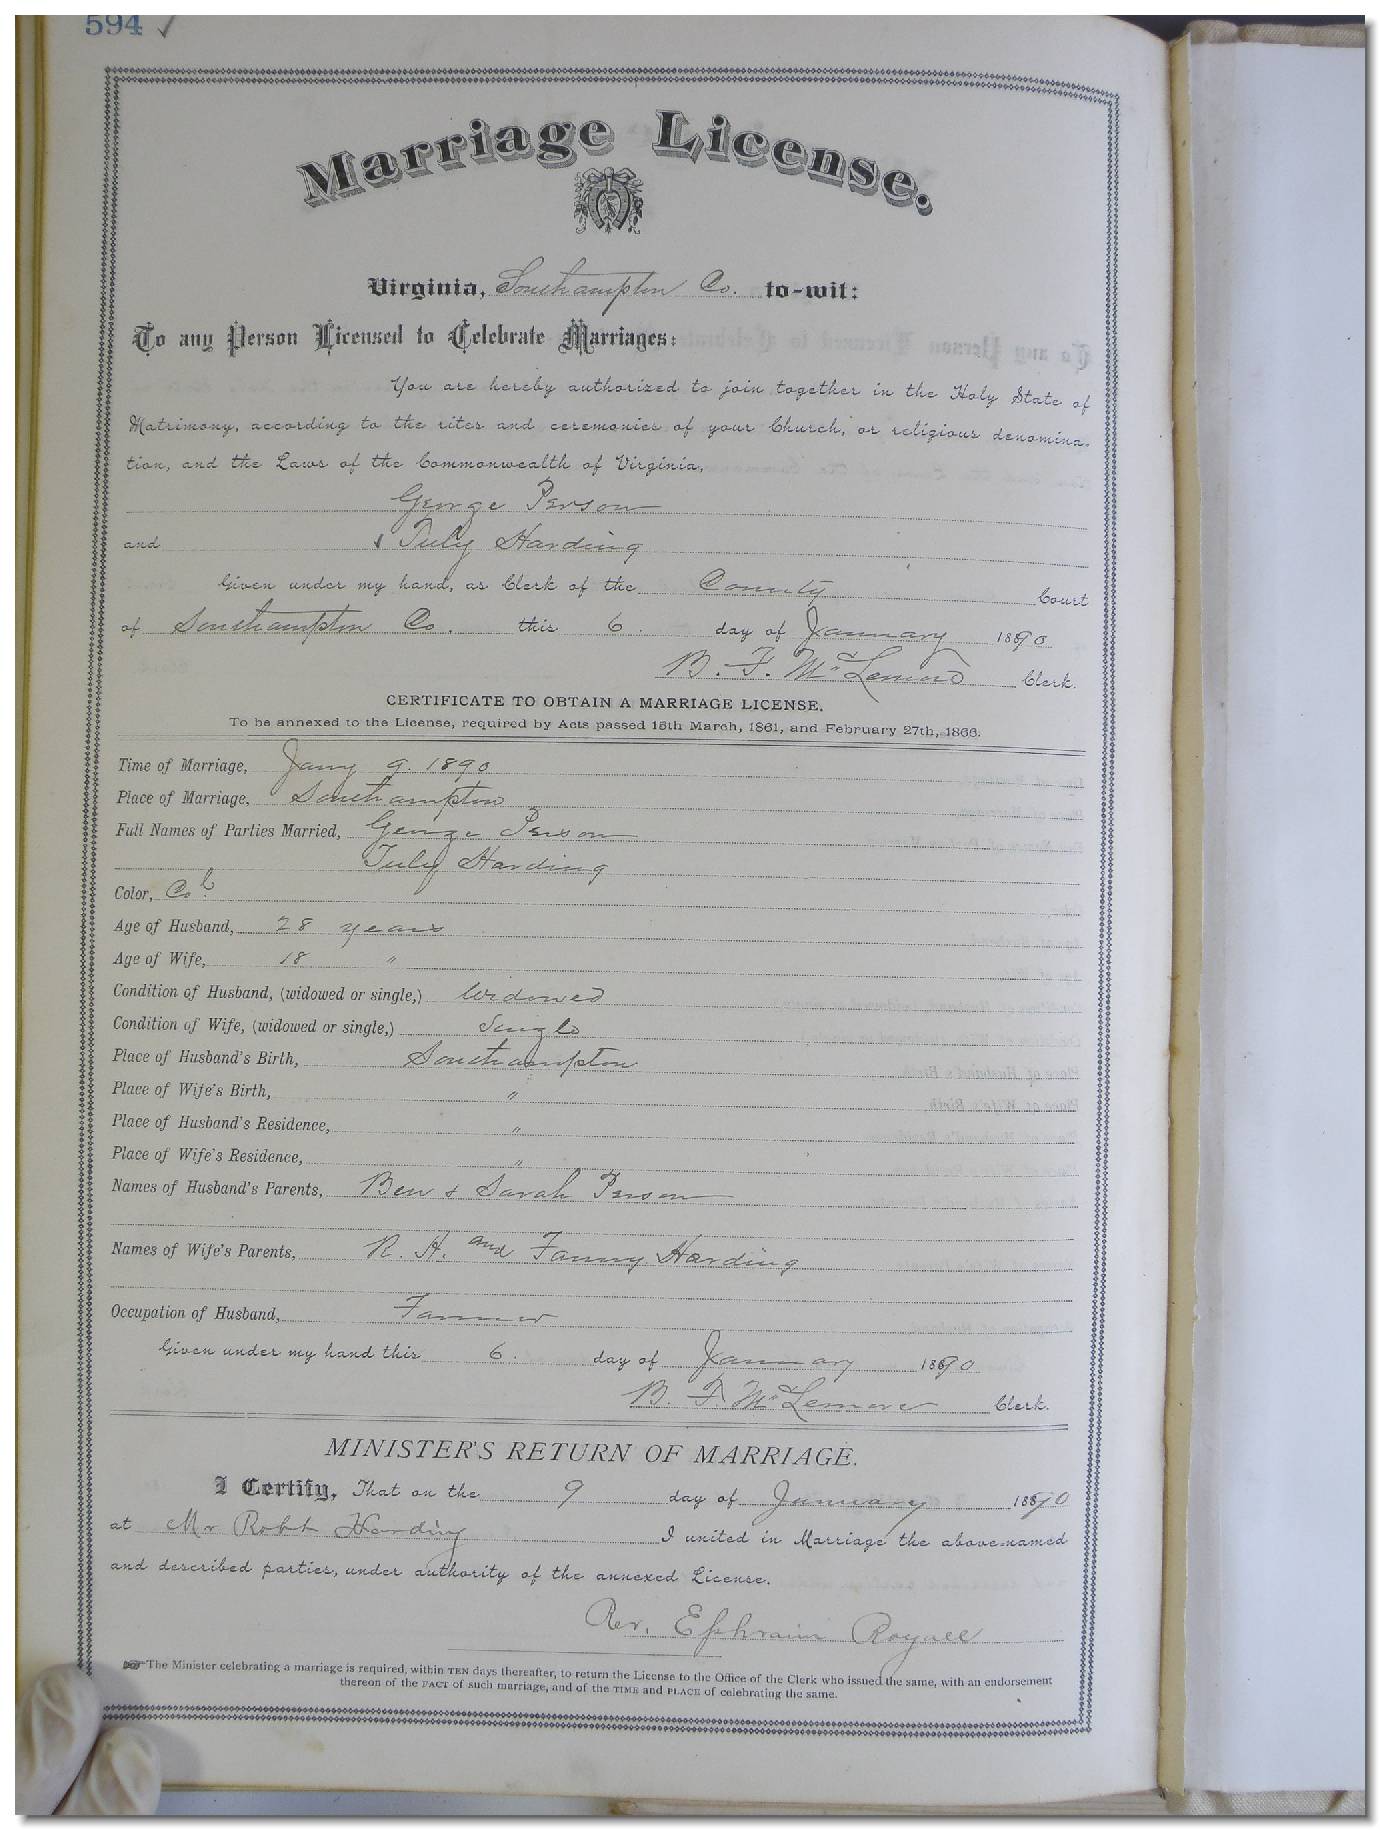 594 ✓
Marriage License.
Virginia, Southampton Co. to-wit:
To any Person Licensed to Celebrate Marriages:
You are hereby authorized to join together in the Holy State of
Matrimony, according to the rites and ceremonies of your Church, or religious denomina-
tion, and the Laws of the Commonwealth of Virginia,
George Person
and July Harding
Given under my hand, as Clerk of the County Court
of Southampton Co. this 6 day of January 1890
B. F. McLemore Clerk.
CERTIFICATE TO OBTAIN A MARRIAGE LICENSE.
To be annexed to the License, required by Acts passed 15th March, 1861, and February 27th, 1866.
Time of Marriage, Jany 9. 1890
Place of Marriage, Southampton
Full Names of Parties Married, George Person
July Harding
Color, Col
Age of Husband, 28 years
Age of Wife, 18 "
Condition of Husband, (widowed or single,) Widowed
Condition of Wife, (widowed or single,) Single
Place of Husband's Birth, Southampton
Place of Wife's Birth, "
Place of Husband's Residence, "
Place of Wife's Residence, "
Names of Husband's Parents, Ben & Sarah Person
Names of Wife's Parents, R. H. and Fanny Harding
Occupation of Husband, Farmer
Given under my hand this 6. day of January 1890
B. F. McLemore Clerk.
MINISTER'S RETURN OF MARRIAGE.
I Certify, That on the 9 day of January 1890
at Mr Robt Harding I united in Marriage the above-named
and described parties, under authority of the annexed License.
Rev. Ephraim Royall
☞ The Minister celebrating a marriage is required, within TEN days thereafter, to return the License to the Office of the Clerk who issued the same, with an endorsement
thereon of the FACT of such marriage, and of the TIME and PLACE of celebrating the same.